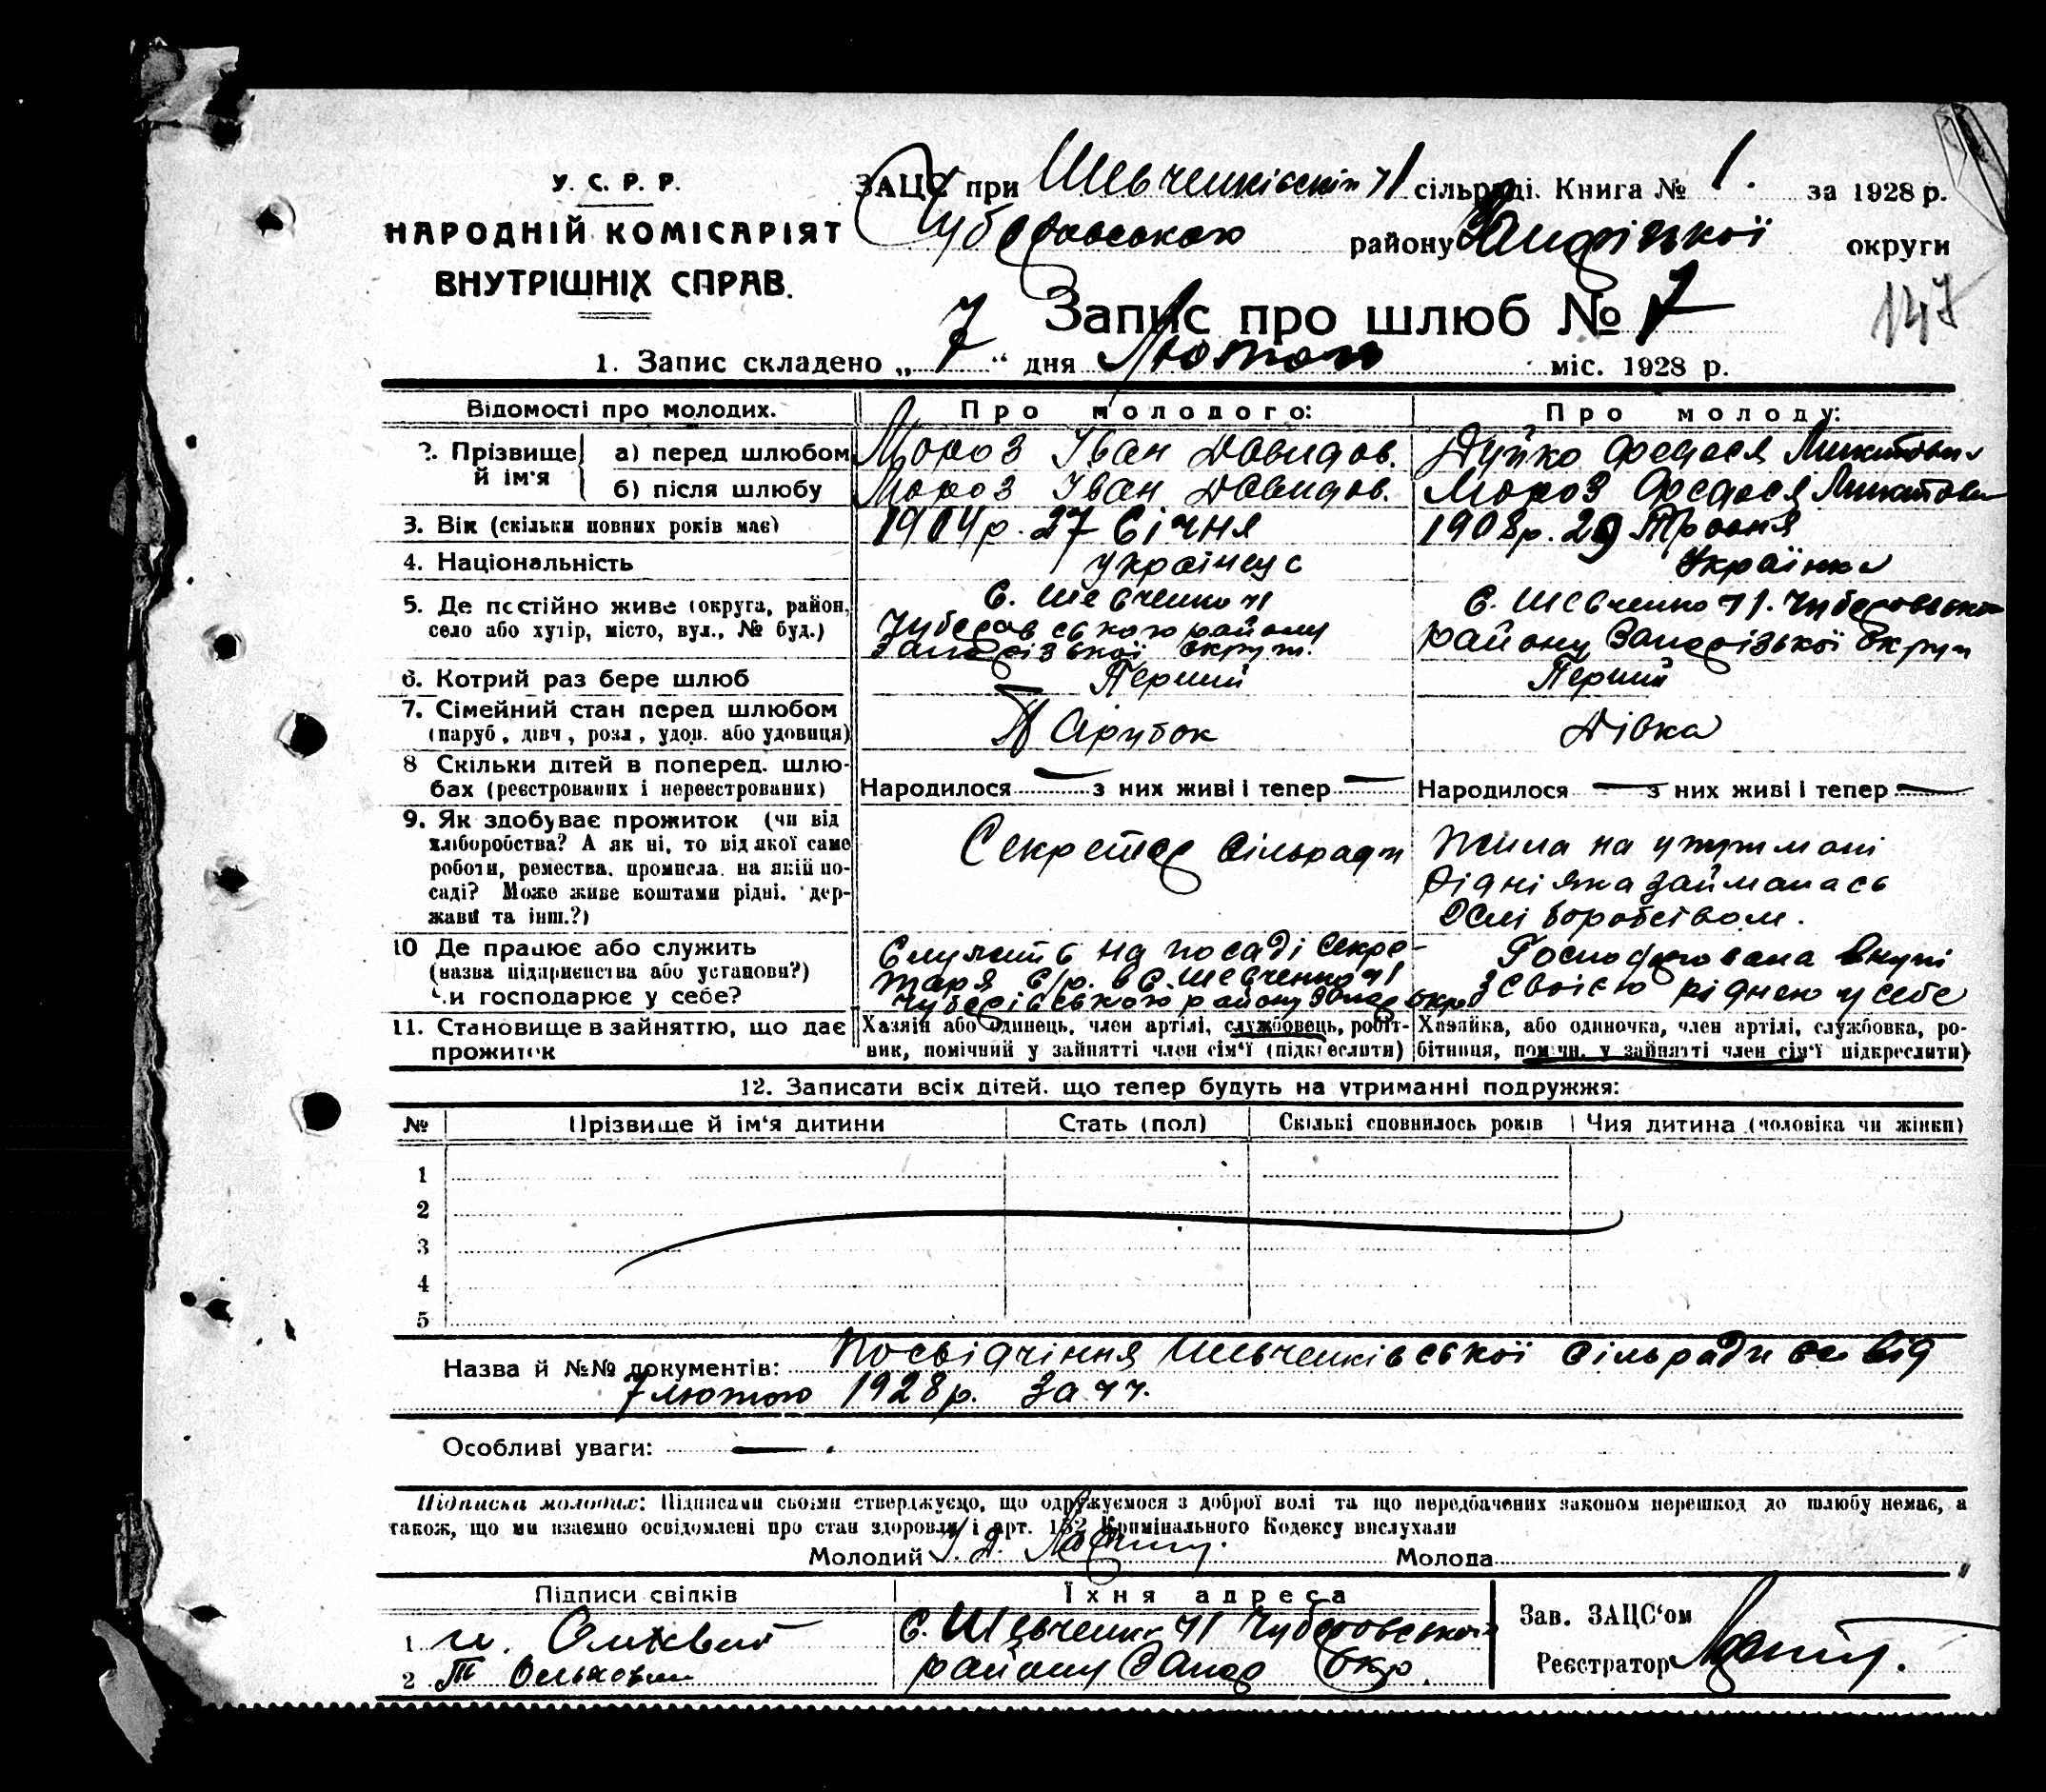 У. С. Р. Р.
НАРОДНІЙ КОМІСАРІЯТ
ВНУТРІШНІХ СПРАВ.
ЗАЦС при Шевченківскій №1 сільраді. Книга № 1. за 1928 р.
Чубарівського району Запорізької округи
147
Запис про шлюб № 7
1. Запис складено „ 7 “ дня Лютого міс. 1928 р.
Відомості про молодих. Про молодого: Про молоду:
2. Прізвище й ім'я
а) перед шлюбом Мороз Іван Давидов. Дуйко Федося Микитовн
б) після шлюбу Мороз Іван Давидов. Мороз Федося Микитовн
3. Вік (скільки повних років має) 1904 р. 27 Січня 1908 р. 29 Травня
4. Національність українець Українка
5. Де постійно живе (округа, район, село або хутір, місто, вул., № буд.)
С. Шевченко №1
Чубарівського району
Запорізької округи.
С. Шевченко №1. Чубарівського
району Запорізької Округи
6. Котрий раз бере шлюб Перший Перший
7. Сімейний стан перед шлюбом
(паруб., дівч., розл., удов. або удовиця) Парубок Дівка
8 Скільки дітей в поперед. шлю-
бах (реєстрованих і нереєстрованих) Народилося — з них живі і тепер — Народилося — з них живі і тепер —
9. Як здобуває прожиток (чи від
хліборобства? А як ні, то від якої саме
роботи, ремества, промисла, на якій по-
саді? Може живе коштами рідні, дер-
жави та інш.?)
Секретар сільради
Жила на утримані
рідні яка займалась
хліборобством.
10 Де працює або служить
(назва підприємства або установи?)
Чи господарює у себе?
Служить на посаді секре-
таря с/р. в с. Шевченко №1
Чубарівського району Запор окр.
Господарювала вкупі
з своією ріднею у себе
11. Становище в зайняттю, що дає
прожиток
Хазяїн або одинець, член артілі, службовець, робіт-
ник, помічний у зайнятті член сім'ї (підкреслити)
Хазяйка, або одиночка, член артілі, службовка, ро-
бітниця, помічн. у зайнятті член сім'ї підкреслити)
12. Записати всіх дітей, що тепер будуть на утриманні подружжя:
№ Прізвище й ім'я дитини Стать (пол) Скількі сповнилось років Чия дитина (чоловіка чи жінки)
1
2
3
4
5
Назва й №№ документів: Посвідчіння Шевченківської сільради від
7 лютого 1928 р. за №
Особливі уваги: — .
Підписка молодих: Підписами своїми стверджуємо, що одружуємося з доброї волі та що передбачених законом перешкод до шлюбу немає, а
також, що ми взаємно освідомлені про стан здоровля і арт. 152 Кримінального Кодексу вислухали
Молодий І. Д. Молода
Підписи свідків Їхня адреса
1
2
С. Шевченко №1 Чубарівського
району Запор Окр.
Зав. ЗАЦС'ом
Реєстратор